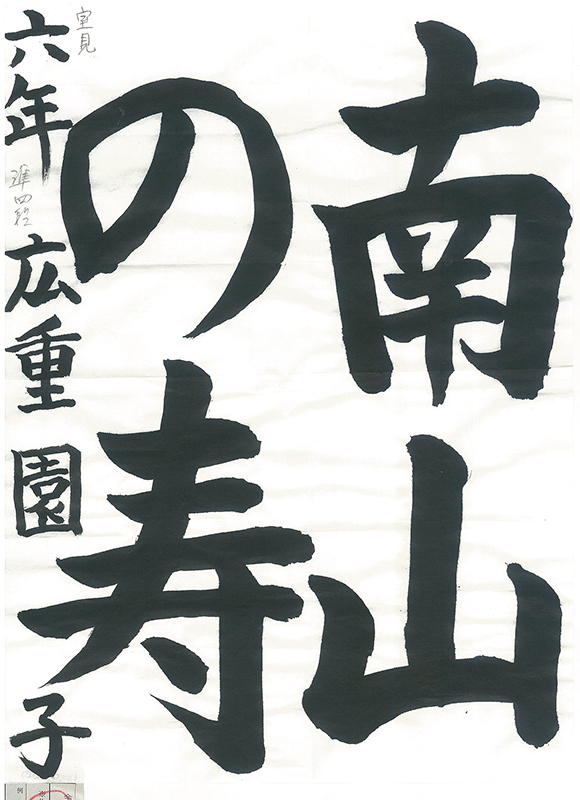 南山
の寿
六年 広重園子
室見
準四段
例